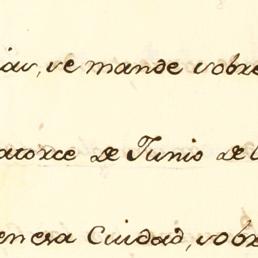 ias, se mande sobre
atorce de Junio de
en esa Ciudad, sobr